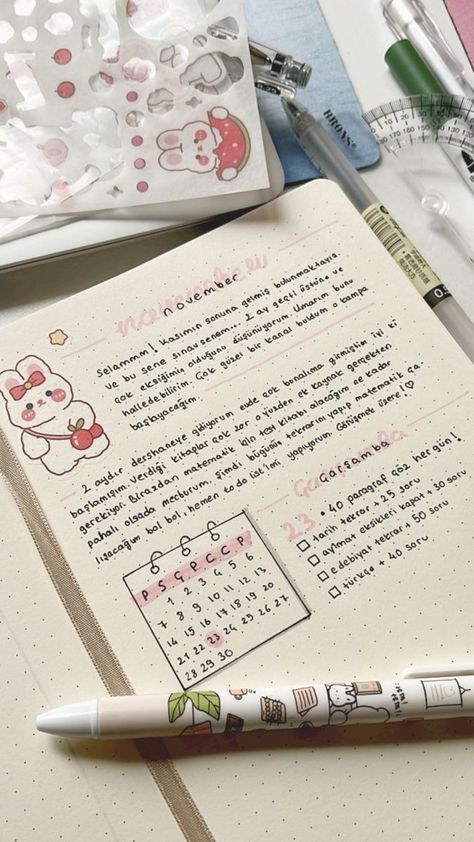 BRONS
november
november
Selammm! Kasımın sonuna gelmiş bulunmaktayız
ve bu sene sınav senem... 2 ay geçti üstüne ve
çok eksiğimiz olduğunu düşünüyorum. Umarım bunu
halledebilirim. Çok güzel bir kanal buldum o kampa
başlayacağım.
2 aydır dershaneye gidiyorum evde çok bunalıma girmiştim iyi ki
başlamışım. Verdiği kitaplar çok zor o yüzden ek kaynak gerçekten
gerekiyor. Birazdan matematik için test kitabı alacağım ne kadar
pahalı olsada mecburum. Şimdi bugünün tekrarını yapıp matematik ça-
lışacağım bol bol. hemen to do list'imi yapıyorum. Görüşmek üzere!
Çarşamba
Çarşamba
23
• 40 paragraf göz her gün!
tarih tekrar + 25 soru
ayt mat eksikleri kapat + 30 soru
edebiyat tekrar + 50 soru
türkçe + 40 soru
P S G P C C P
1 2 3 4 5 6
7 8 9 10 11 12 13
14 15 16 17 18 19 20
21 22 23 24 25 26 27
28 29 30